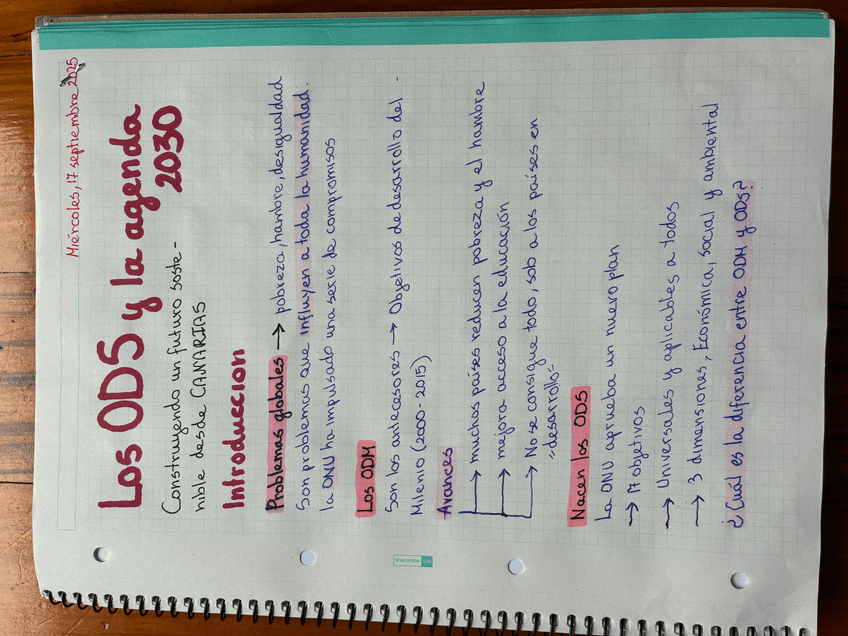 Miércoles, 17 septiembre 2025
Los ODS y la agenda
2030
Construyendo un futuro soste-
nible desde CANARIAS
Introduccion
Problemas globales → pobreza, hambre, desigualdad
Son problemas que influyen a toda la humanidad.
la ONU ha impulsado una serie de compromisos
Los ODM
Son los antecasores → Objetivos de desarrollo del
Milenio (2000-2015)
Avances
→ muchos países reducen pobreza y el hambre
→ mejora acceso a la educación
→ No se consigue todo, sob a los países en
"desarrollo"
Nacen los ODS
La ONU aprueba un nuevo plan
→ 17 objetivos
→ Universales y aplicables a todos
→ 3 dimensiones, Económica, social y ambiental
¿Cuál es la diferencia entre ODM y ODS?